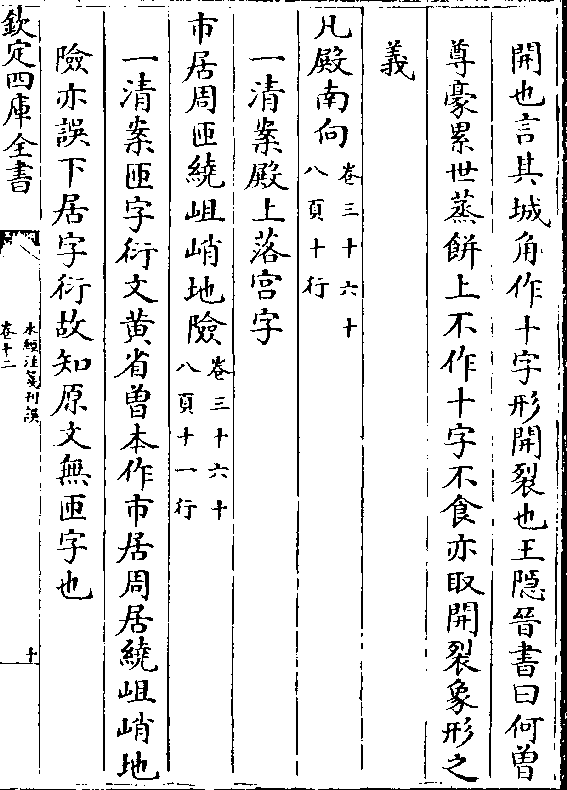 開也言其城角作十字形開裂也王隱晉書曰何曽
尊豪累世蒸餅上不作十字不食亦取開裂象形之
義
凡殿南向卷三十六十八頁十行
一清案殿上落宫字
市居周匝繞岨峭地險卷三十六十八頁十一行
一清案匝字衍文黄省曽本作市居周居繞岨峭地
險亦誤下居字衍故知原文無匝字也
欽定四庫全書
水經注箋刊誤
卷十二
十